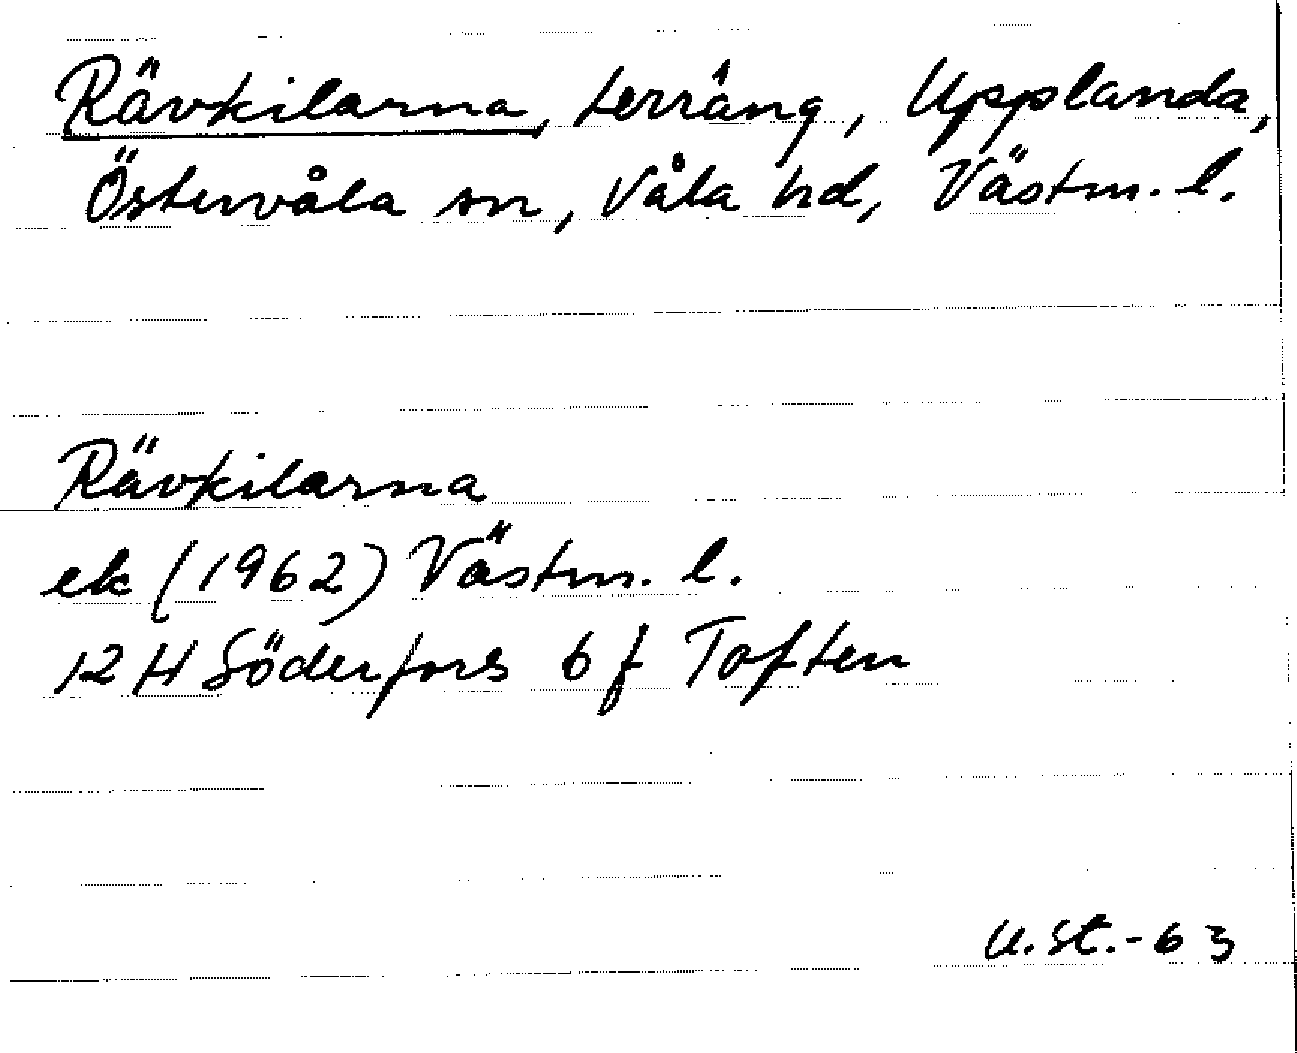 Rävkilarna, terräng, Upplanda,
Östervåla sn, Våla hd, Västm. l.
Rävkilarna
ek (1962) Västm. l.
12 H Söderfors 6 f Toften
U.St.-63